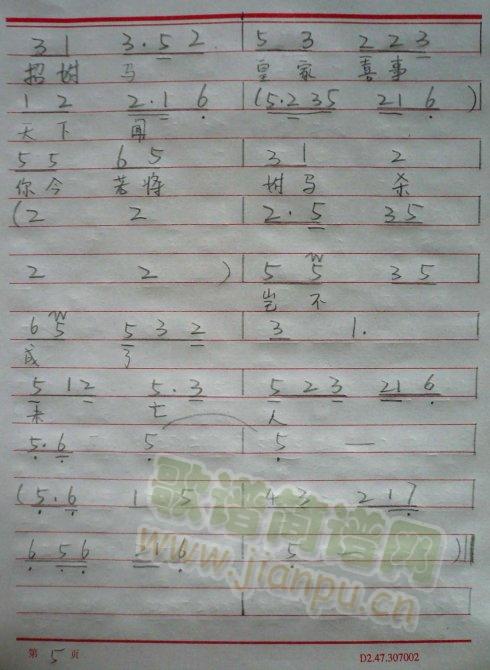 3 1 3·5 2 | 5 3 2 2 3
招 树 马 皇 家 喜 事
1 2 2·1 6 | (5·2 3 5 2 1 6)
天 下 闻
5 5 6 5 | 3 1 2
你 今 若 将 树 马 杀
(2 2 | 2·5 3 5
2 2) | 5 5 3 5
岂 不
6 5 5 3 2 | 3 1·
成 了
5 1 2 5·3 | 5 2 3 2 1 6
未 亡 人
5·6 5 - | 5 —
(5·6 1 5 | 4 3 2 1 7
6 5 6 2 1 6 | 5 —)
歌谱简谱网
www.jianpu.cn
第 5 页 D2.47.307002